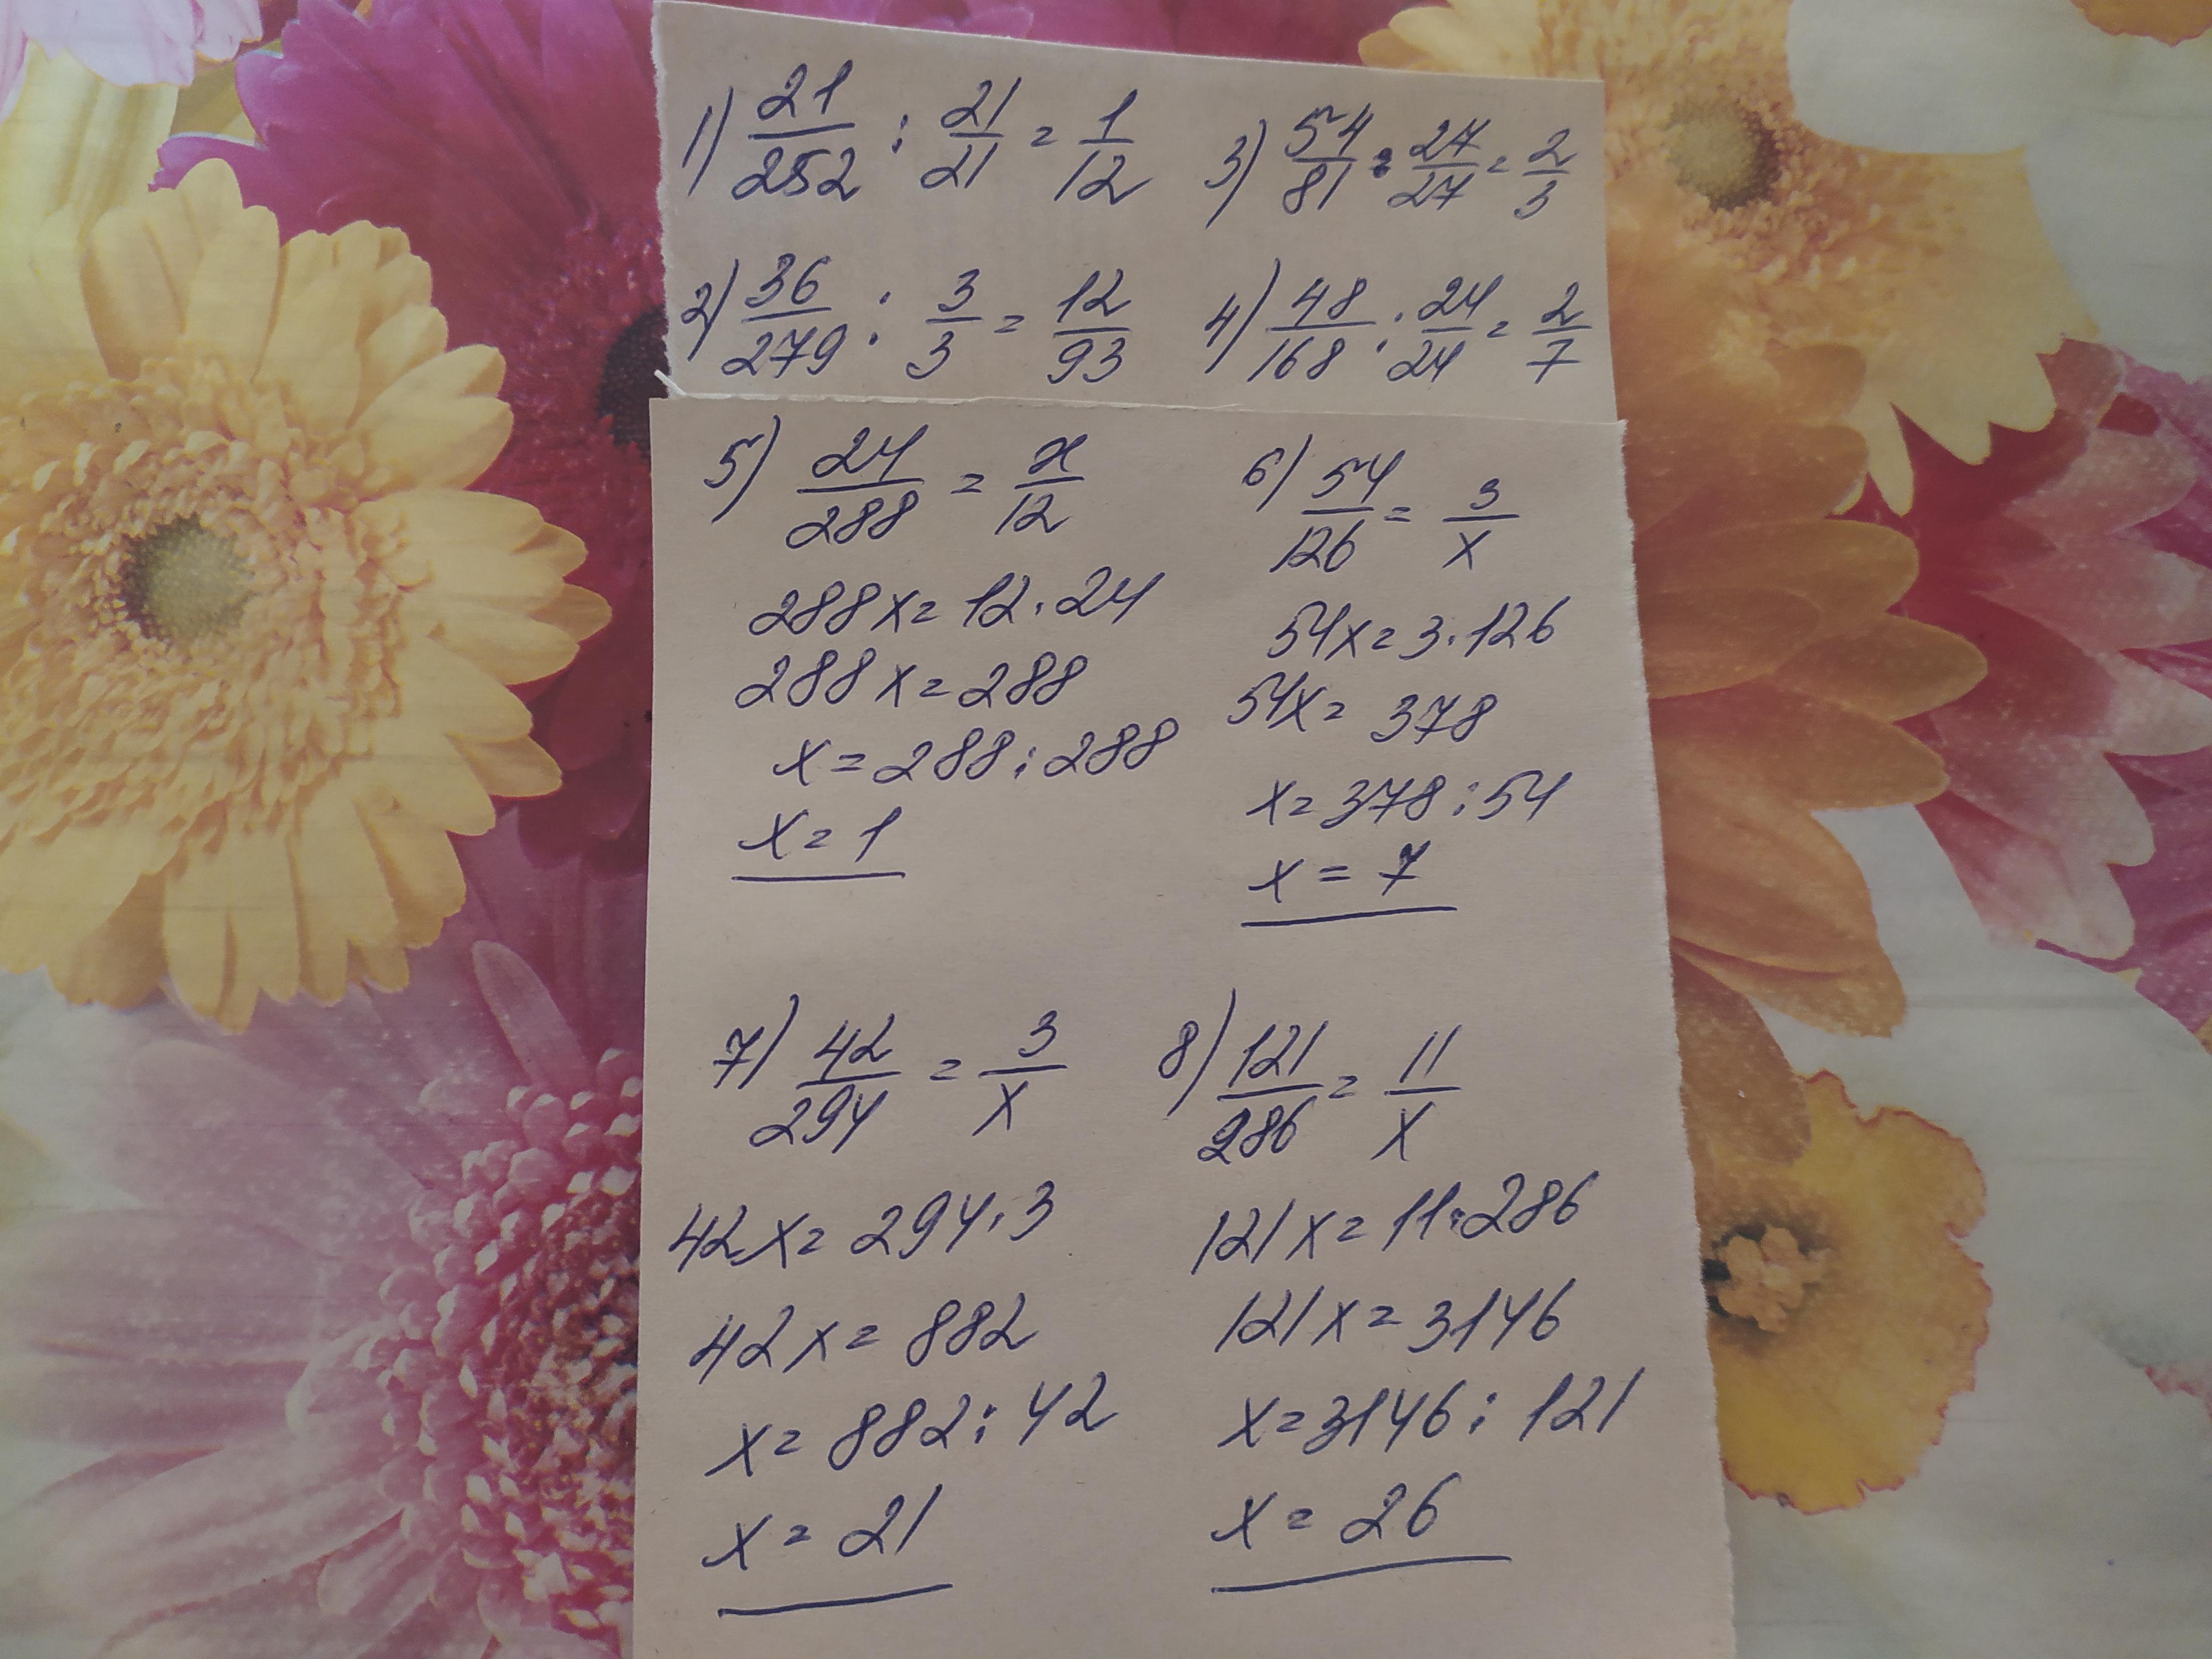 1) 21/252 : 21/21 = 1/12
2) 36/279 : 3/3 = 12/93
3) 54/81 : 27/27 = 2/3
4) 48/168 : 24/24 = 2/7
5) 24/288 = x/12
288x = 12 · 24
288x = 288
x = 288 : 288
x = 1
6) 54/126 = 3/x
54x = 3 · 126
54x = 378
x = 378 : 54
x = 7
7) 42/294 = 3/x
42x = 294 · 3
42x = 882
x = 882 : 42
x = 21
8) 121/286 = 11/x
121x = 11 · 286
121x = 3146
x = 3146 : 121
x = 26